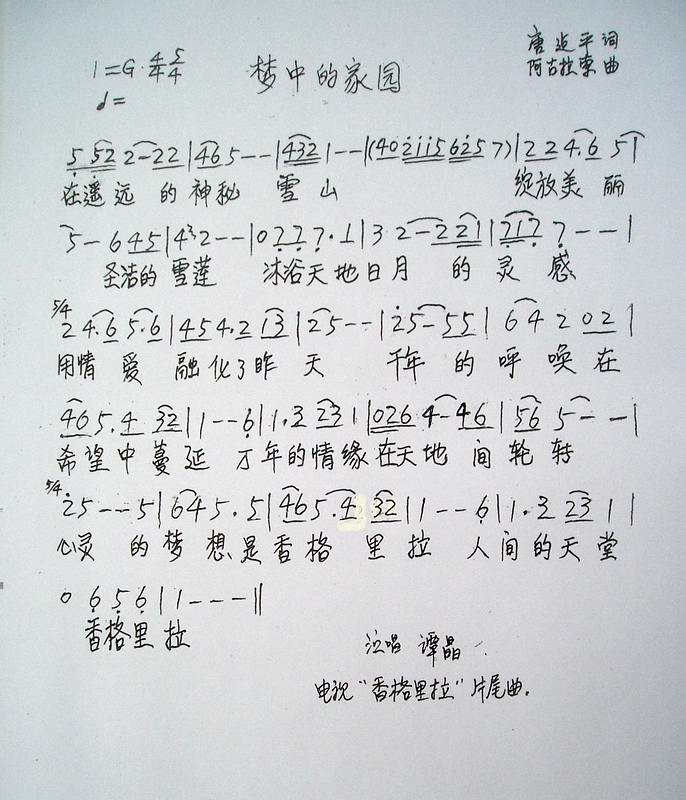 1=G 4/4 5/4 梦中的家园 唐 平 词
♩= 阿古拉泰 曲
5 52 2-22|465--|4321--|(402115625 7)|224.6 5|
在遥远 的神秘 雪山 绽放美 丽
5-645|4³2--|0777.1|32-221|7177--|
圣洁的 雪莲 沐浴天地日月 的 灵 感
5/4 24.65.6|454.213|25--|25-55|642 02|
用情 爱 融化了昨 天 千年 的呼 唤在
465.4 32|1--6|1.3 231|026 4-46|565--|
希望中蔓延 万年的情缘在天地 间轮转
5/4 25--5|645.5|465.4 32|1--6|1.3 231|
心灵 的梦 想是香格 里拉 人间的天堂
0 656|1---‖
香格里 拉
演唱 谭晶
电视“香格里拉”片尾曲.